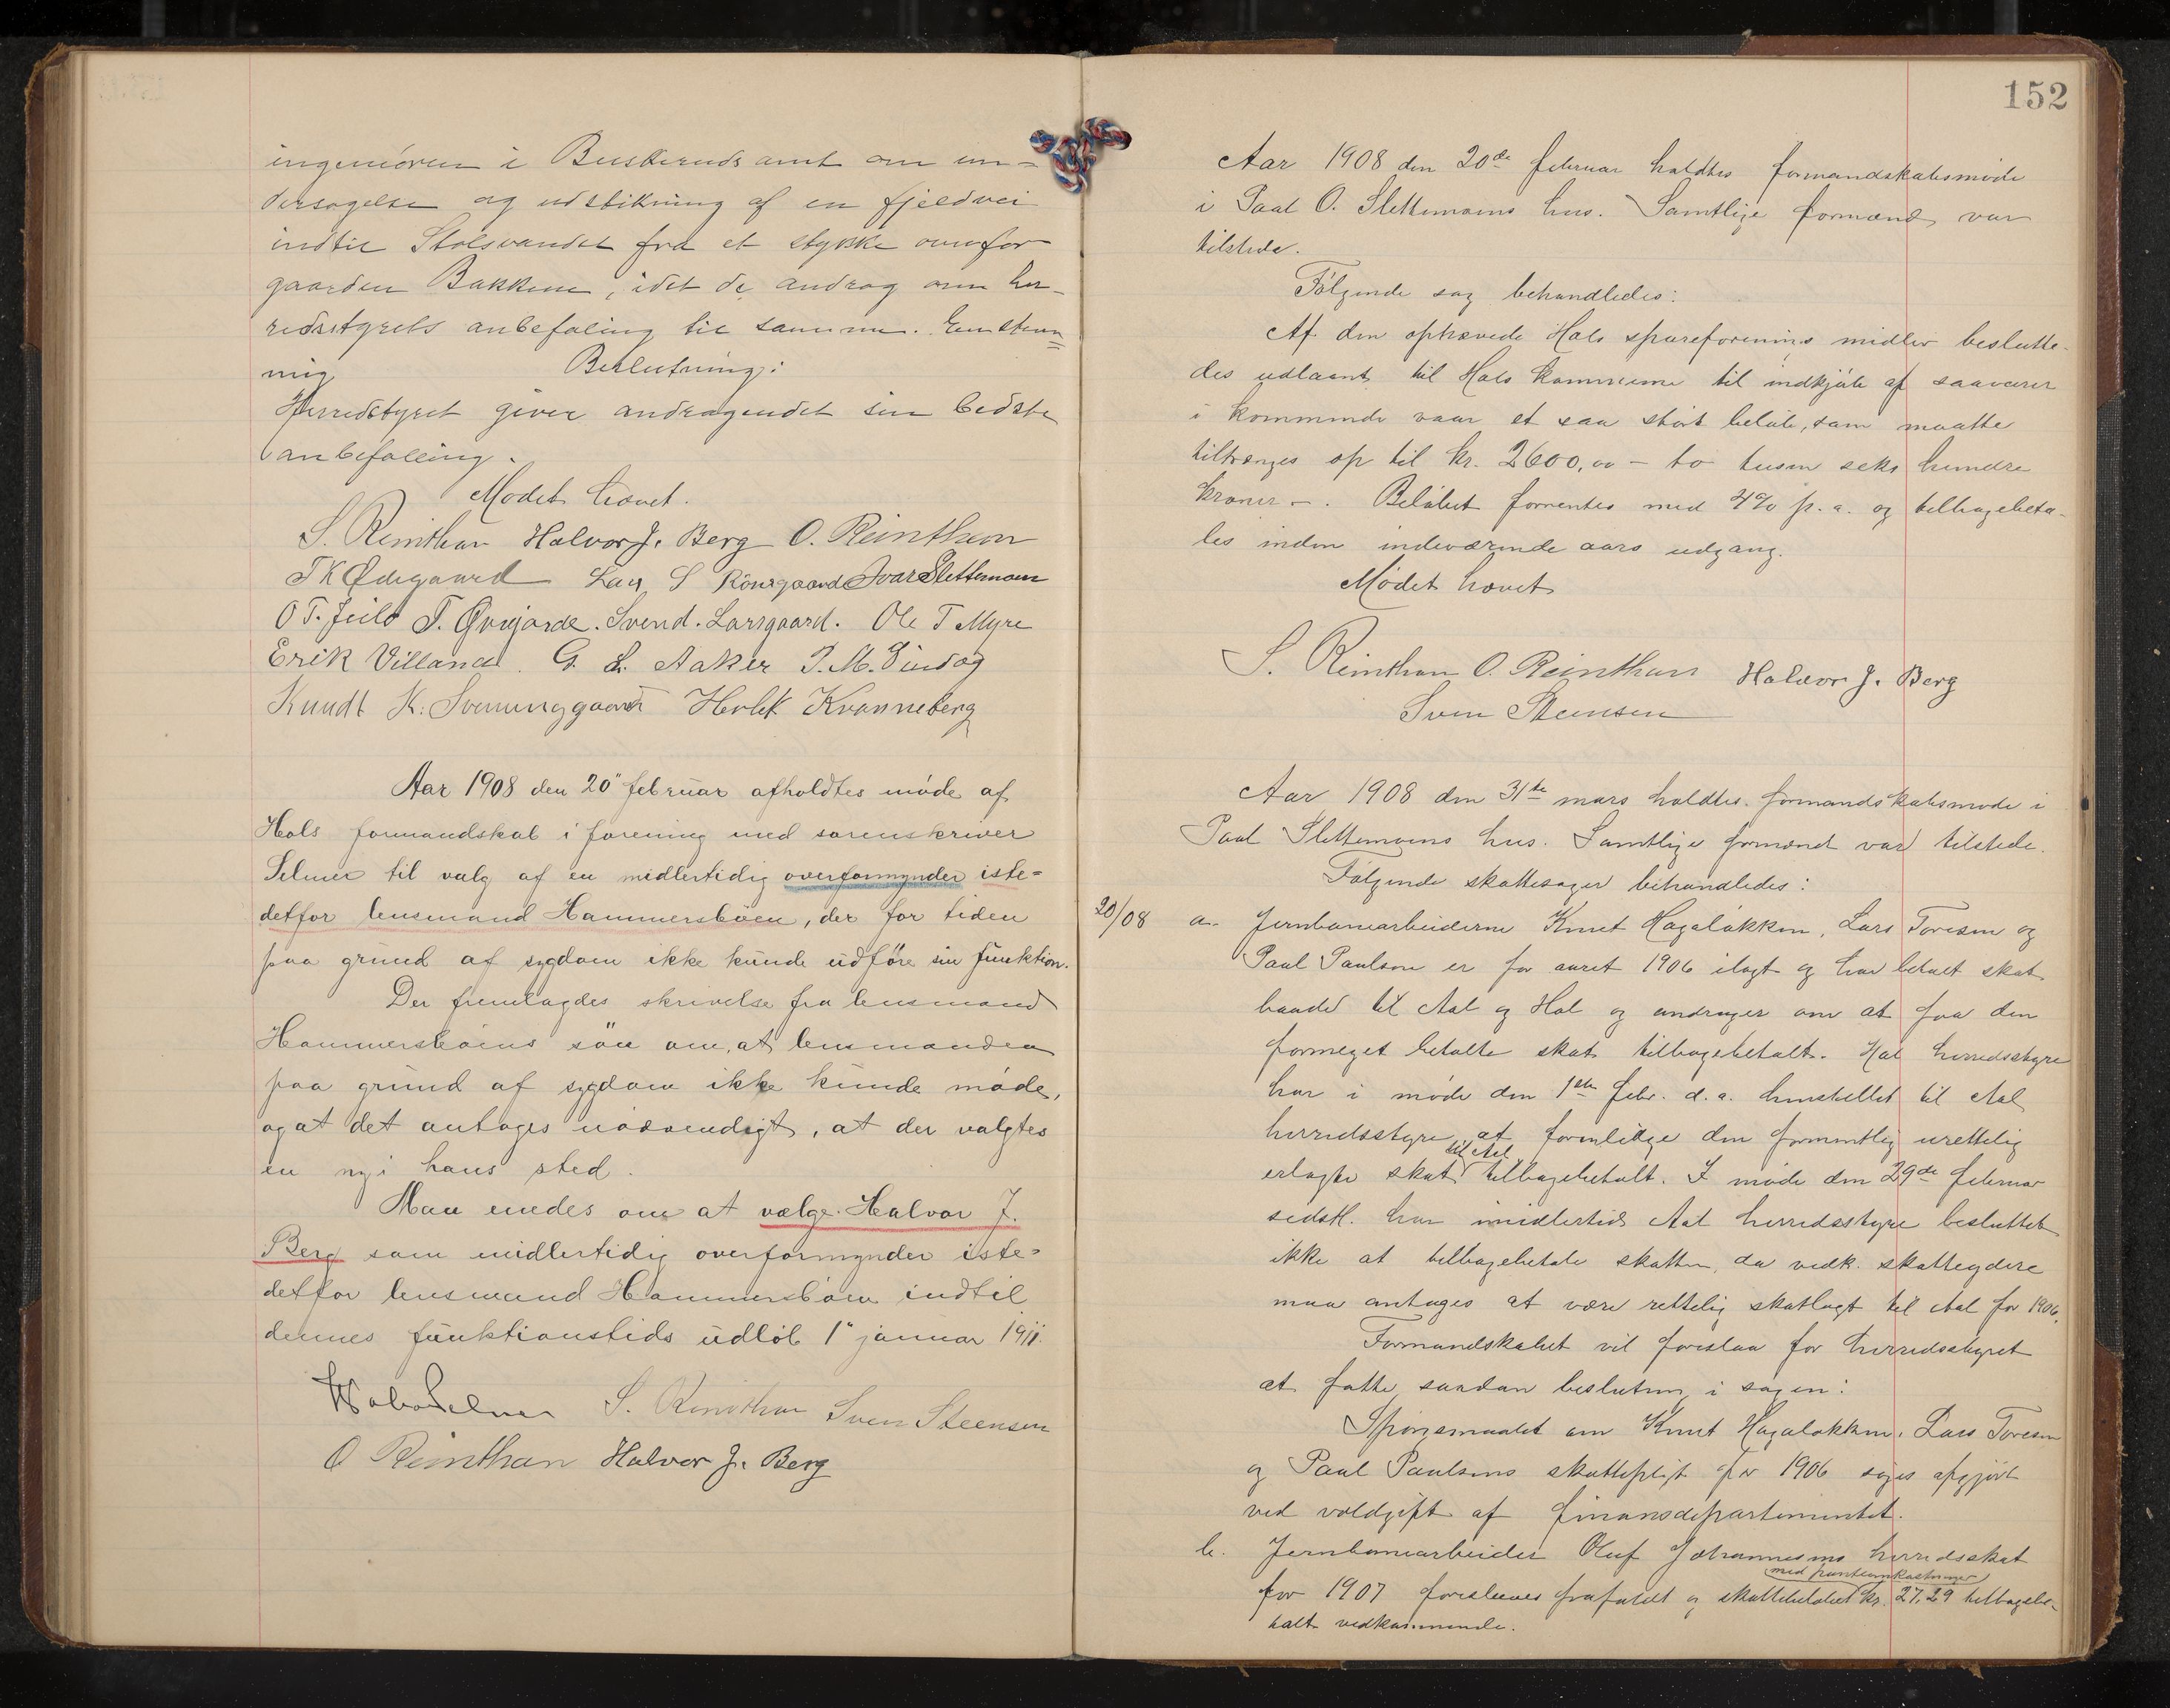 ingeniøren i Buskeruds amt om un=
dersøgelse og udstikning af en fjeldvei
indtil Stolsvandet fra et stykke ovenfor
gaarden Bakkene, idet de androg om her-
redsstyrets anbefaling til samme. Enstem=
mig Beslutning:
Herredstyret giver andragendet sin bedste
anbefaling.
Mødet hævet.
S. Reinthon Halvor J. Berg O. Reinthon
T K Ødegaard Lars S Rønsgaard Ivar Slettemoen
O T. Jeilo T. Øvrejorde. Svend. Larsgaard. Ole T Myre
Erik Villand. G. L. Aaker T. M.
Knudt K. Sveinunggaard Herlek Kvanneberg
Aar 1908 den 20" februar afholdtes møde af
Hols formandskab i forening med sorenskriver
Selmer til valg af en midlertidig overformynder iste=
detfor lensmand Hammersbøen, der for tiden
paa grund af sygdom ikke kunde udføre sin funktion.
Der fremlagdes skrivelse fra lensmand
Hammersbøens søn om, at lensmanden
paa grund af sygdom ikke kunde møde,
og at det antages nødvendigt, at der valgtes
en ny i hans sted.
Man enedes om at vælge Halvor J.
Berg som midlertidig overformynder iste=
detfor lensmand Hammersbøen indtil
dennes funktionstids udløb 1" januar 1911.
Selmer S. Reinthon Sven Steensen
O Reinthon Halvor J. Berg
152
Aar 1908 den 20de februar holdtes formandskabsmøde
i Paal O. Slettemoens hus. Samtlige formænd var
tilstede.
Følgende sag behandledes:
Af den ophævede Hols spareforenings midler beslutte-
des udlaant til Hols kommune til indkjøb af saavarer
i kommende vaar et saa stort beløb, som maatte
tiltrænges op til kr. 2600,00 – to tusen seks hundre
kroner –. Beløbet forrentes med 4% p. a. og tilbagebeta-
les inden indeværende aars udgang.
Mødet hævet
S. Reinthon O. Reinthon Halvor J. Berg
Sven Steensen
Aar 1908 den 31te mars holdtes formandskabsmøde i
Paal Slettemoens hus. Samtlige formænd var tilstede.
Følgende skattesager behandledes:
20/08 a. Jernbanearbeiderne Knut Hagaløkken, Lars Toresen og
Paul Paulsen er for aaret 1906 ilagt og har betalt skat
baade til Aal og Hol og andrager om at faa den
formeget betalte skat tilbagebetalt. Hol herredsstyre
har i møde den 1ste febr. d. a. henstillet til Aal
herredsstyre at formlidge den formentlig urettelig
erlagte skat til Aal tilbagebetalt. I møde den 29de februar
sidstl. har imidlertid Aal herredsstyre besluttet
ikke at tilbagebetale skatten, da vedk. skatteydere
maa antages at være rettelig skatlagt til Aal for 1906.
Formandskabet vil foreslaa for herredsstyret
at fatte saadan beslutning i sagen:
Spørgsmaalet om Knut Hagaløkken, Lars Toresen
og Paul Paulsens skattepligt for 1906 søges afgjort
ved voldgift af finansdepartementet.
b. Jernbanearbeider Oluf Johannesens herredsskat
for 1907 foreslaaes frafaldt og skattebeløbet med panteomkostninger kr. 27,29 tilbagebe-
talt vedkommende.